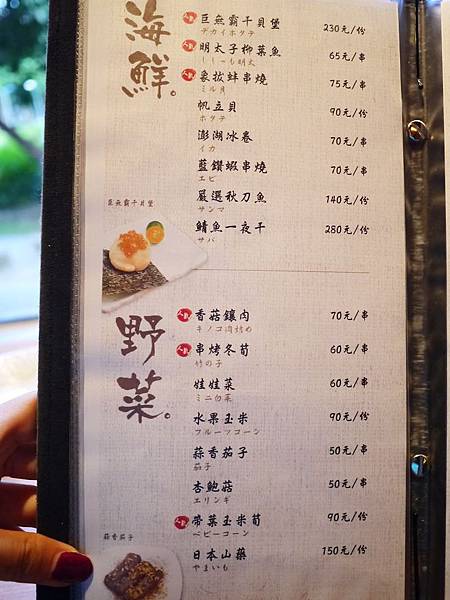 海鮮。
人氣 巨無霸干貝堡 230元/份
デカイホタテ
人氣 明太子柳葉魚 65元/串
ししゃも明太
人氣 象拔蚌串燒 75元/串
ミル貝
帆立貝 90元/份
ホタテ
澎湖冰卷 70元/串
イカ
藍鑽蝦串燒 70元/串
エビ
嚴選秋刀魚 140元/份
サンマ
鯖魚一夜干 280元/份
サバ
巨無霸干貝堡
野菜。
人氣 香菇鑲肉 70元/串
キノコ肉詰め
人氣 串烤冬筍 60元/串
竹の子
娃娃菜 60元/串
ミニ白菜
水果玉米 90元/份
フルーツコーン
蒜香茄子 50元/串
茄子
杏鮑菇 50元/串
エリンギ
人氣 帶葉玉米筍 90元/份
ベビーコーン
日本山藥 150元/份
やまいも
蒜香茄子